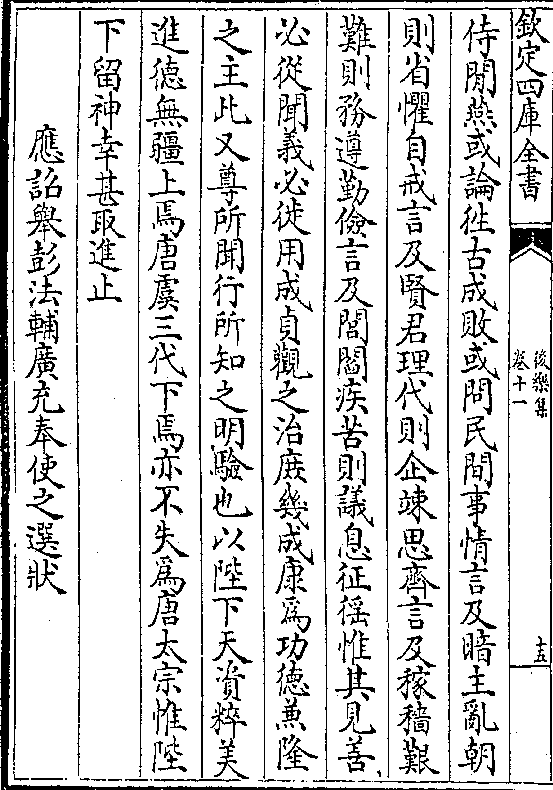 欽定四庫全書
後樂集
卷十一
十五
侍閒燕或論徃古成敗或問民間事情言及暗主亂朝
則省懼自戒言及賢君理代則企竦思齊言及稼穡艱
難則務遵勤儉言及閭閻疾苦則議息征徭惟其見善
必從聞義必徙用成貞觀之治庻幾成康為功德兼隆
之主此又尊所聞行所知之明驗也以陛下天資粹美
進德無疆上焉唐虞三代下焉亦不失為唐太宗惟陛
下留神幸甚取進止
應詔舉彭法輔廣充奉使之選狀